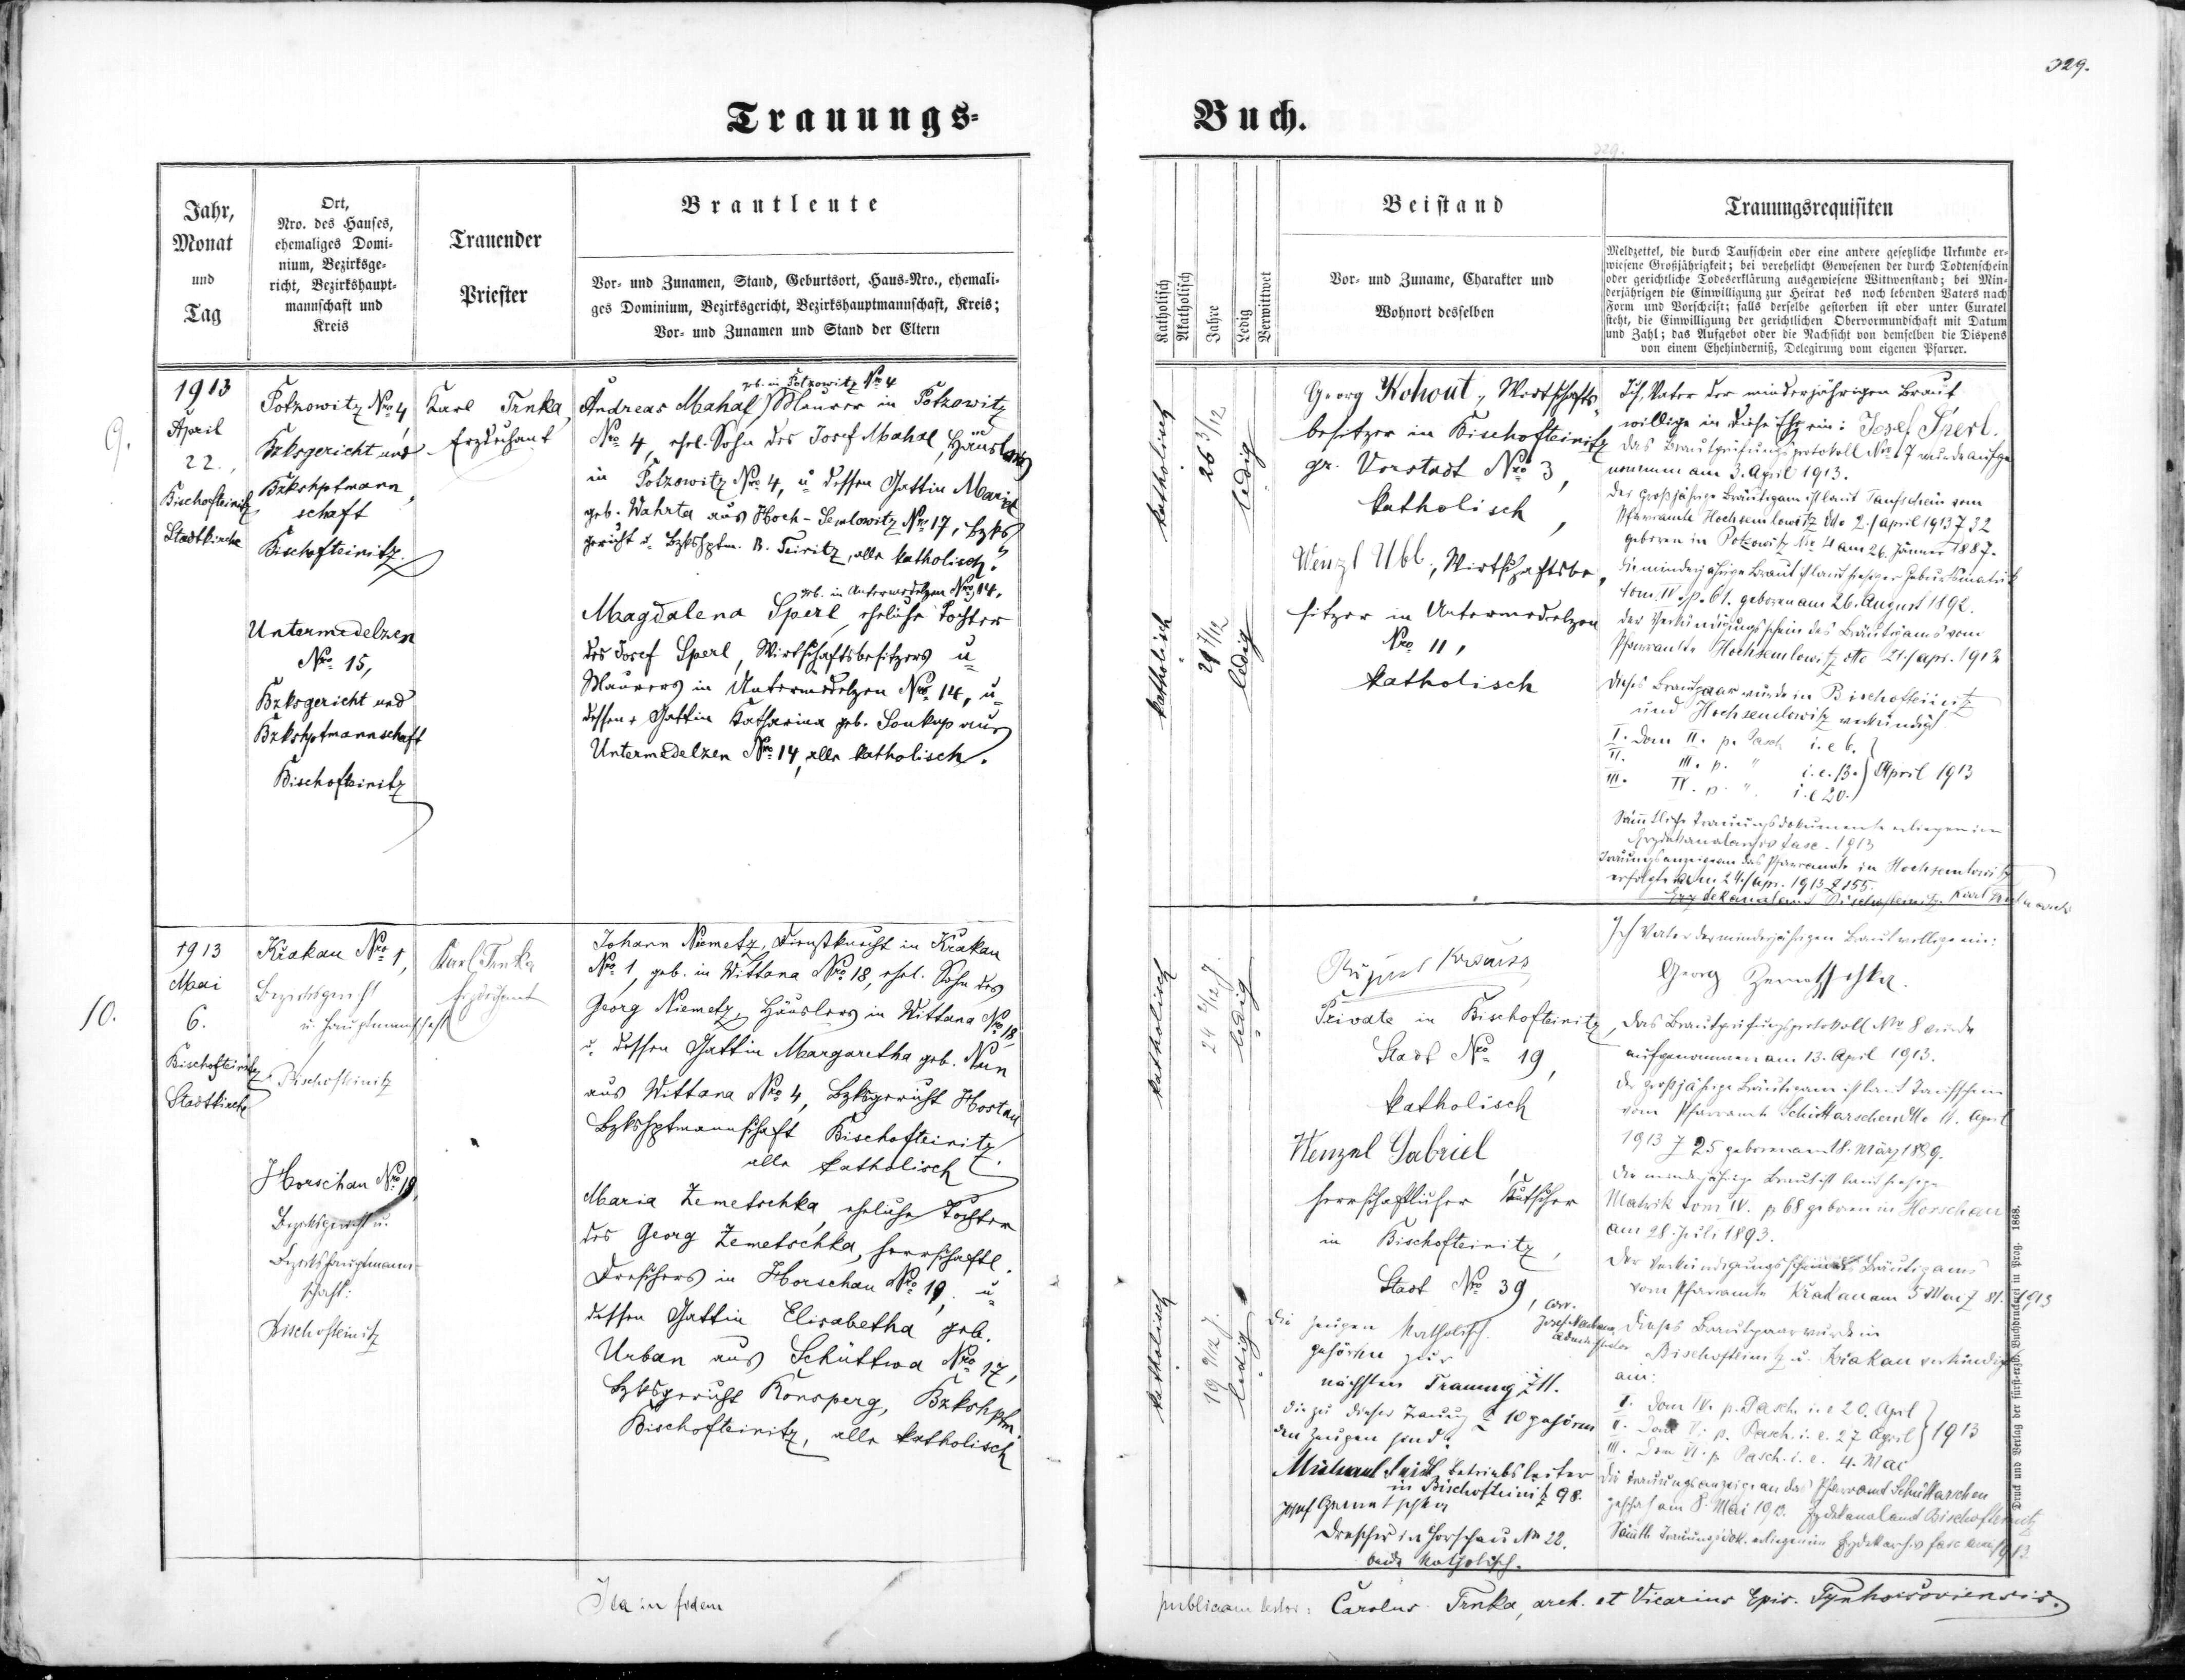 329.
Trauungs-
Buch.
329.
Jahr,
Monat
und
Tag
Ort,
Nro. des Hauses,
ehemaliges Domi-
nium, Bezirksge-
richt, Bezirkshaupt-
mannschaft und
Kreis
Trauender
Priester
Brautleute
Vor- und Zunamen, Stand, Geburtsort, Haus-Nro., ehemali-
ges Dominium, Bezirksgericht, Bezirkshauptmannschaft, Kreis;
Vor- und Zunamen und Stand der Eltern
Katholisch
Akatholisch
Jahre
Ledig
Verwittwet
Beistand
Vor- und Zuname, Charakter und
Wohnort desselben
Trauungsrequisiten
Meldzettel, die durch Taufschein oder eine andere gesetzliche Urkunde er-
wiesene Großjährigkeit; bei verehelicht Gewesenen der durch Todtenschein
oder gerichtliche Todeserklärung ausgewiesene Wittwenstand; bei Min-
derjährigen die Einwilligung zur Heirat des noch lebenden Vaters nach
Form und Vorschrift; falls derselbe gestorben ist oder unter Curatel
steht, die Einwilligung der gerichtlichen Obervormundschaft mit Datum
und Zahl; das Aufgebot oder die Nachsicht von demselben die Dispens
von einem Ehehinderniß, Delegirung vom eigenen Pfarrer.
9.
1913
April
22.,
Bischofteinitz
Stadtkirche
Potzowitz Nro 4,
Bzksgericht und
Bzkshptmann-
schaft
Bischofteinitz.
Untermedelzen
Nro 15,
Bzksgericht und
Bzkshptmannschaft
Bischofteinitz
Karl Trnka,
Erzdechant
geb. in Potzowitz Nro 4
Andreas Mahal, Maurer in Potzowitz
Nro 4, ehel. Sohn des Josef Mahal, Häuslers
in Potzowitz Nro 4, u. dessen Gattin Maria
geb. Wahrta aus Hoch-Semlowitz Nro 17, Bzks-
gericht u. Bzkshptm. B. Teinitz, alle katholisch.
geb. in Untermedelzen Nro 14,
Magdalena Sperl, eheliche Tochter
des Josef Sperl, Wirtschaftsbesitzers u.
Maurers in Untermedelzen Nro 14, u.
dessen Gattin Katharina geb. Soukup aus
Untermedelzen Nro 14, alle katholisch.
katholisch
26 3/12
ledig
katholisch
ledig
Georg Kohout, Wirtschafts-
besitzer in Bischofteinitz
gr. Vorstadt Nro 3,
katholisch,
Wenzl Ubl, Wirtschaftsbe-
sitzer in Untermedelzen
Nro 11,
katholisch
Ich, Vater der minderjährigen Braut
willige in diese Ehe ein: Josef Sperl.
Das Brautprüfungsprotokoll Nro 7 wurde aufge-
nommen am 3. April 1913.
Der großjährige Bräutigam ist laut Taufschein vom
Pfarramte Hochsemlowitz dto 2./April 1913 Z 32
geboren in Potzowitz Nro 4 am 26. Jänner 1887.
Die minderjährige Braut ist laut hiesiger Geburtsmatrik
tom. IV. p. 61. geboren am 26. August 1892.
Der Verkündigungsschein des Bräutigams vom
Pfarramte Hochsemlowitz dto 21./Apr. 1913
Dieses Brautpaar wurde in Bischofteinitz
und Hochsemlowitz verkündigt
I. Dom II. p. Pasch. i. e. 6.
II. III. p. " i. e. 13. } April 1913
III. IV. p. " i. e. 20.
Sämmtliche Trauungsdokumente erliegen im
Erzdekanalarchiv fasc. 1913
Trauungsanzeige an das Pfarramte in Hochsemlowitz
erfolgte am 24./Apr. 1913 Z 155.
Erzdekanalamt Bischofteinitz. Karl
10.
1913
Mai
6.
Bischofteinitz
Stadtkirche
Křakau Nro 1,
Bezirksgericht
u. Hauptmannschaft
Bischofteinitz
Horschau Nro 19,
Bezirksgericht u.
Bezirkshauptmann-
schaft:
Bischofteinitz
Karl Trnka
Erzdechant
Johann Niemetz, Dienstknecht in Křakau
Nro 1, geb. in Wittana Nro 18, ehel. Sohn des
Georg Niemetz, Häuslers in Wittana Nro 18
u. dessen Gattin Margaretha geb. Nun
aus Wittana Nro 4, Bzksgericht Hostau
Bzkshptmannschaft Bischofteinitz,
alle katholisch.
Maria Zemetschka, eheliche Tochter
des Georg Zemetschka, herrschaftl.
Dreschers in Horschau Nro 19, u.
dessen Gattin Elisabetha geb.
Urban aus Schüttwa Nro 17,
Bzksgericht Ronsperg, Bzkshptm.
Bischofteinitz, alle katholisch
katholisch
ledig
katholisch
19 9/12 J.
ledig
Krauss
Private in Bischofteinitz,
Stadt Nro 19,
katholisch
Wenzel Gabriel
herrschaftlicher Kutscher
in Bischofteinitz,
Stadt Nro 39,
Die Zeugen katholisch.
gehören zur
nächsten Trauung Z 11.
Die zu dieser Trauung Z 10 gehören-
den Zeugen sind:
Betriebsleiter
in Bischofteinitz 98.
Josef Zemetschka
Drescher in Horschau No 22.
beide katholisch.
Ich Vater der minderjährigen Braut willige ein:
Georg Zemetschka.
Das Brautprüfungsprotokoll Nro 8 wurde
aufgenommen am 13. April 1913.
Der großjährige Bräutigam ist laut Taufschein
vom Pfarramte Schüttarschen dto 11. April
1913 Z 25 geboren am 18. März 1889.
Die minderjährige Braut ist laut hiesiger
Matrik tom IV. p 68 geboren in Horschau
am 28. Juli 1893.
Der Verkündigungsschein des Bräutigams
vom Pfarramte Křakau am 5 Mai Z 81. 1913
Dieses Brautpaar wurde in
Bischofteinitz u. Křakau verkündigt
am:
I. Dom IV. p. Pasch. i. e 20. April
II. Dom V. p. Pasch. i. e. 27 April } 1913
III. Dom VI. p Pasch. i. e. 4. Mai
Die Trauungsanzeige an das Pfarramt Schüttarschen
geschah am 8. Mai 1913. Erzdekanalamt Bischofteinitz
Sämtl. Trauungsdok. erliegen im Erzdekarchiv fasc 1913
Druck und Verlag der fürst-erzb. Buchdruckerei in Prag. 1868.
Ita in fidem
publicam testor: Carolus Trnka, arch. et Vicarius Epis. Tynhorsoviensis.